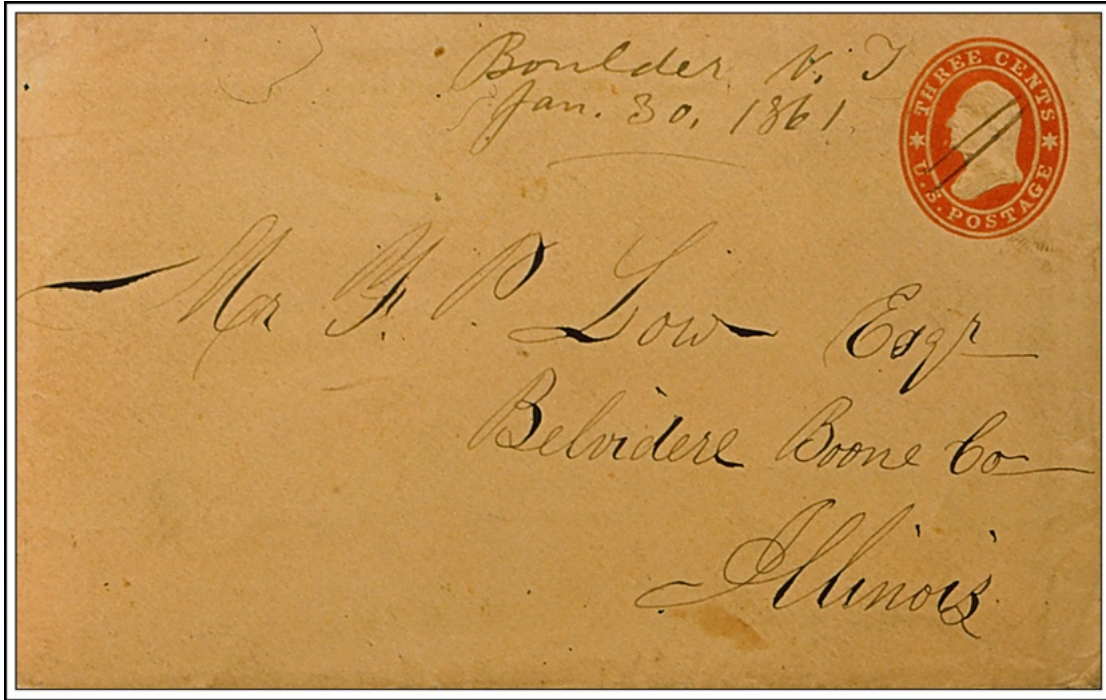 Boulder N. T
Jan. 30, 1861.
THREE CENTS
U.S. POSTAGE
Mr F. P. Low Esqr
Belvidere Boone Co
Illinois